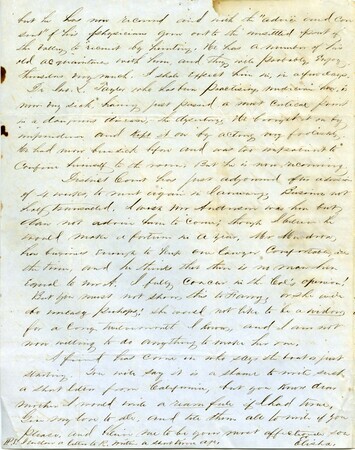 but he has now recovered and with the advice and con
sent of his physician gone out to the unsettled part of
the valley, to recruit by hunting. He has a number of his
old acquaintances with him, and they will probably enjoy
themselves very much. I shall expect him in, in a few days.
Dr. Jno. L. Taylor who has been practicing medicine &c, is
now my sick having just passed a most critical point
in a dangerous disease, the dysentery. He brought it on by
imprudence and kept it on by acting very foolishly.
He had never been sick before and was too impatient to
confine himself to the room. But he is now recovering
District Court has just adjourned after a session
of 4 weeks to meet again in January. Business not
half transacted. I wish Mr Anderson was here but
dare not advise him to come; though I believe he
would make a fortune in a year. Mr
has business enough to keep one lawyer comfortably in
the town, and he thinks that there is no man here
equal to Mr A. I fully concur in the Col's opinion!
But you must not show this to Fanny, or she will
be uneasy perhaps! She would not like to be a widow
for a long I know, and I am not
now willing to do anything to make her one.
A friend has come in who says the boat is just
starting. You will say it is a shame to write such
a short letter from California, but you know dear
mother I would write a ream full if I had time.
Give my love to all, and tell them all to write if you
please, and believe me to be your most affectionate son